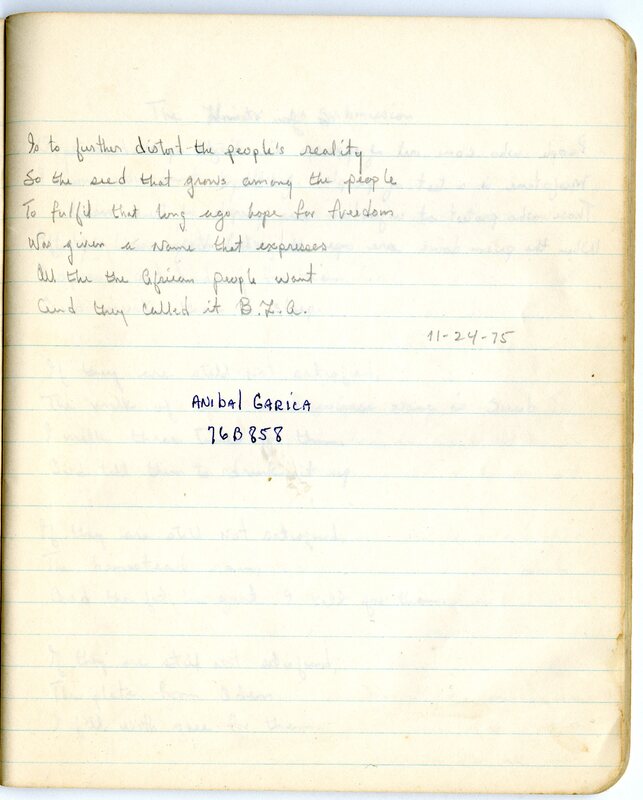 Is to further distort the people's reality
So the seed that grows among the people
To fulfil that long ago hope for freedom
Was given a name that expresses
All the the African people want
And they called it B.L.A.
11-24-75
ANIbAl GARICA
76B858